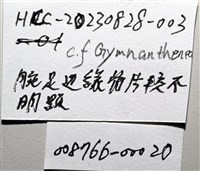 HCC-20230828-003
c.f Gymnanthera
腕足边缘
片较不
明显
008766-00020